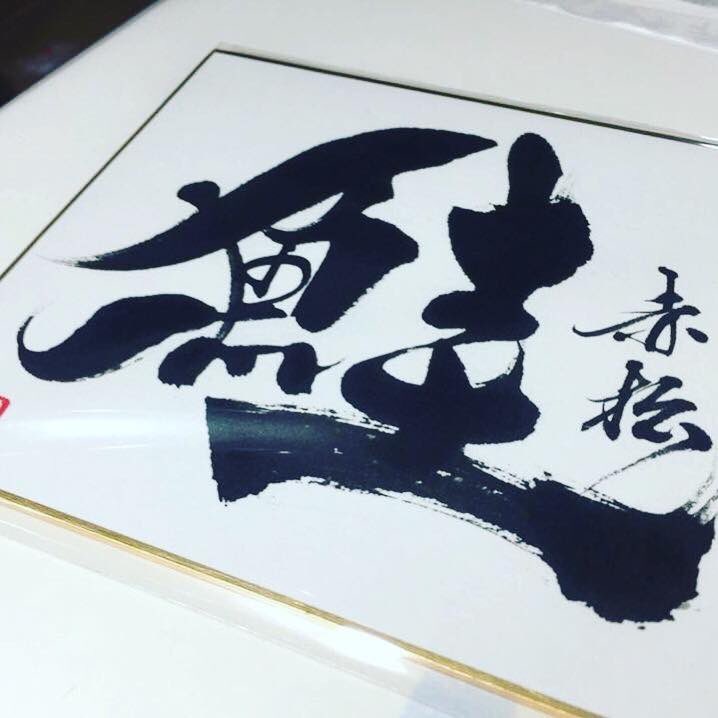 鮭
赤松